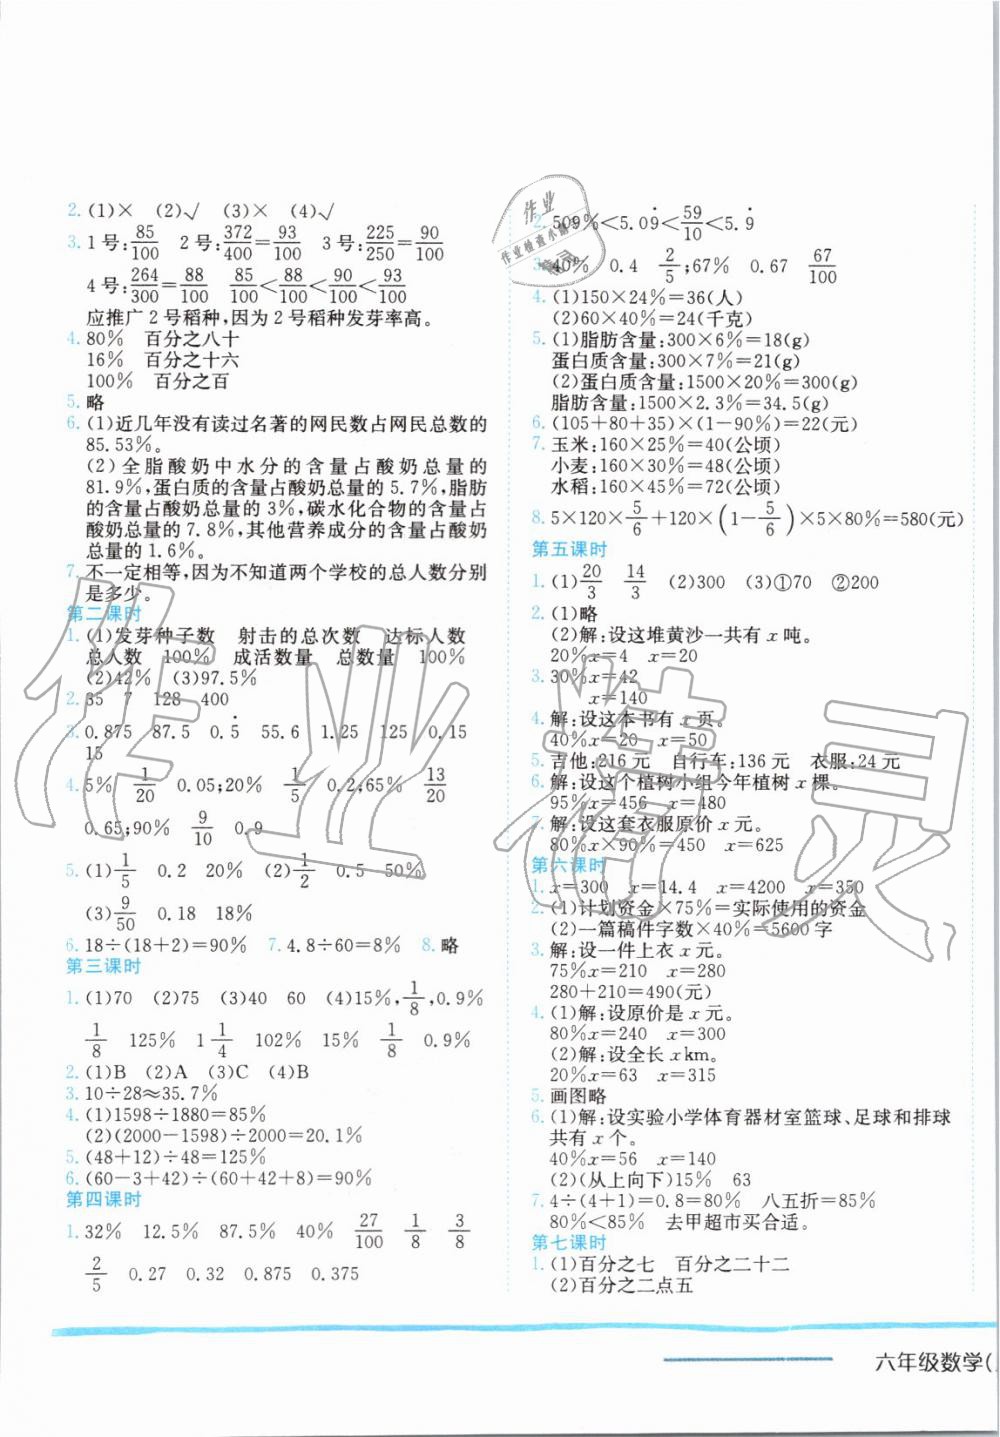 2. (1)× (2)√ (3)× (4)√
3. 1号:85/100 2号:372/400=93/100 3号:225/250=90/100
4号:264/300=88/100 85/100<88/100<90/100<93/100
应推广2号稻种,因为2号稻种发芽率高。
4. 80% 百分之八十
16% 百分之十六
100% 百分之百
5. 略
6. (1)近几年没有读过名著的网民数占网民总数的
85.53%。
(2)全脂酸奶中水分的含量占酸奶总量的
81.9%,蛋白质的含量占酸奶总量的5.7%,脂肪
的含量占酸奶总量的3%,碳水化合物的含量占
酸奶总量的7.8%,其他营养成分的含量占酸奶
总量的1.6%。
7. 不一定相等,因为不知道两个学校的总人数分别
是多少。
第二课时
1. (1)发芽种子数 射击的总次数 达标人数
总人数 100% 成活数量 总数量 100%
(2)42% (3)97.5%
2. 35 7 128 400
3. 0.875 87.5 0.5̇ 55.6 1.25 125 0.15
15
4. 5% 1/20 0.05;20% 1/5 0.2;65% 13/20
0.65;90% 9/10 0.9
5. (1)1/5 0.2 20% (2)1/2 0.5 50%
(3)9/50 0.18 18%
6. 18÷(18+2)=90% 7. 4.8÷60=8% 8. 略
第三课时
1. (1)70 (2)75 (3)40 60 (4)15%,1/8,0.9%
1/8 125% 1 1/4 102% 15% 1/8 0.9%
2. (1)B (2)A (3)C (4)B
3. 10÷28≈35.7%
4. (1)1598÷1880=85%
(2)(2000-1598)÷2000=20.1%
5. (48+12)÷48=125%
6. (60-3+42)÷(60+42+8)=90%
第四课时
1. 32% 12.5% 87.5% 40% 27/100 1/8 3/8
2/5 0.27 0.32 0.875 0.375
2. 509%<5.09̇<59/10<5.9̇
3. 40% 0.4 2/5;67% 0.67 67/100
4. (1)150×24%=36(人)
(2)60×40%=24(千克)
5. (1)脂肪含量:300×6%=18(g)
蛋白质含量:300×7%=21(g)
(2)蛋白质含量:1500×20%=300(g)
脂肪含量:1500×2.3%=34.5(g)
6. (105+80+35)×(1-90%)=22(元)
7. 玉米:160×25%=40(公顷)
小麦:160×30%=48(公顷)
水稻:160×45%=72(公顷)
8. 5×120×5/6+120×(1-5/6)×5×80%=580(元)
第五课时
1. (1)20/3 14/3 (2)300 (3)①70 ②200
2. (1)略
(2)解:设这堆黄沙一共有x吨。
20%x=4 x=20
3. 30%x=42
x=140
4. 解:设这本书有x页。
40%x=20 x=50
5. 吉他:216元 自行车:136元 衣服:24元
6. 解:设这个植树小组今年植树x棵。
95%x=456 x=480
7. 解:设这套衣服原价x元。
80%x×90%=450 x=625
第六课时
1. x=300 x=14.4 x=4200 x=350
2. (1)计划资金×75%=实际使用的资金
(2)一篇稿件字数×40%=5600字
3. 解:设一件上衣x元。
75%x=210 x=280
280+210=490(元)
4. (1)解:设原价是x元。
80%x=240 x=300
(2)解:设全长x km。
20%x=63 x=315
5. 画图略
6. (1)解:设实验小学体育器材室篮球、足球和排球
共有x个。
40%x=56 x=140
(2)(从上向下)15% 63
7. 4÷(4+1)=0.8=80% 八五折=85%
80%<85% 去甲超市买合适。
第七课时
1. (1)百分之七 百分之二十二
(2)百分之二点五
六年级数学(
作业精灵
作业
作业检查小助手